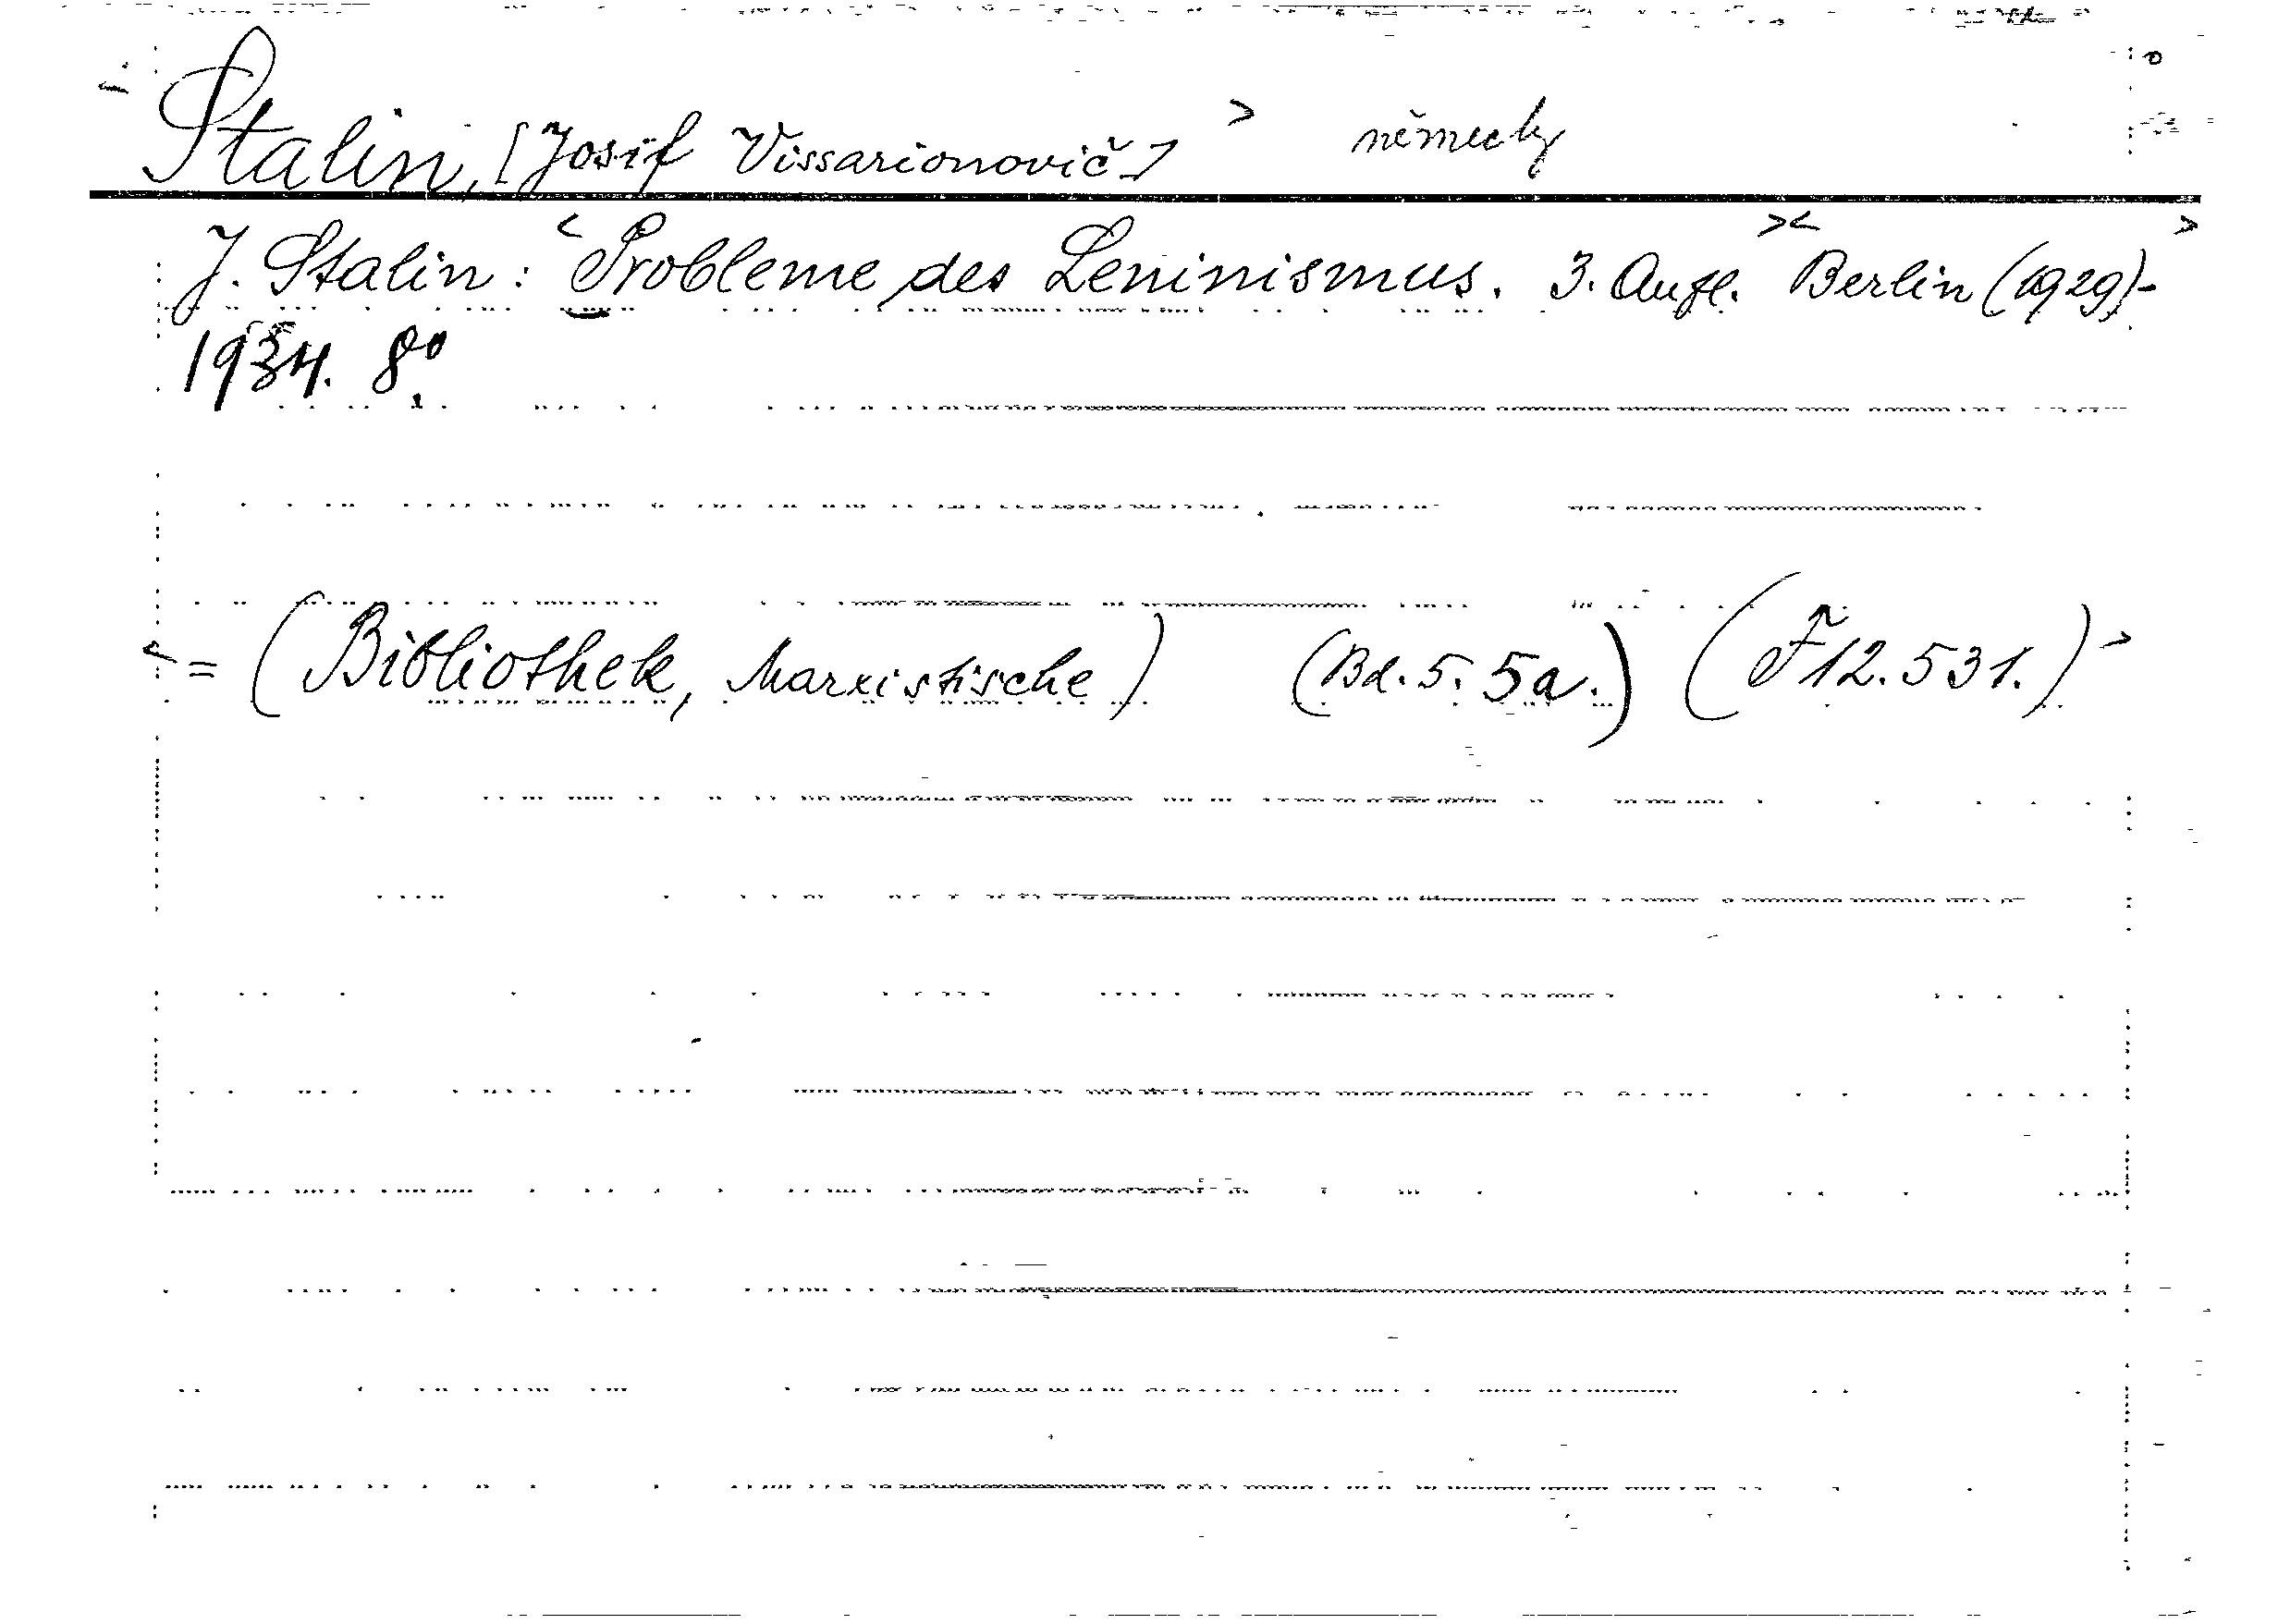 Stalin, [Josif Vissarionovič] > německy
J. Stalin: <Probleme des Leninismus. 3. Aufl. >< Berlin (1929)- >
1934. 8°.
<= (Bibliothek, Marxistische) (Bd. 5. 5a.) (F 12.531.) >